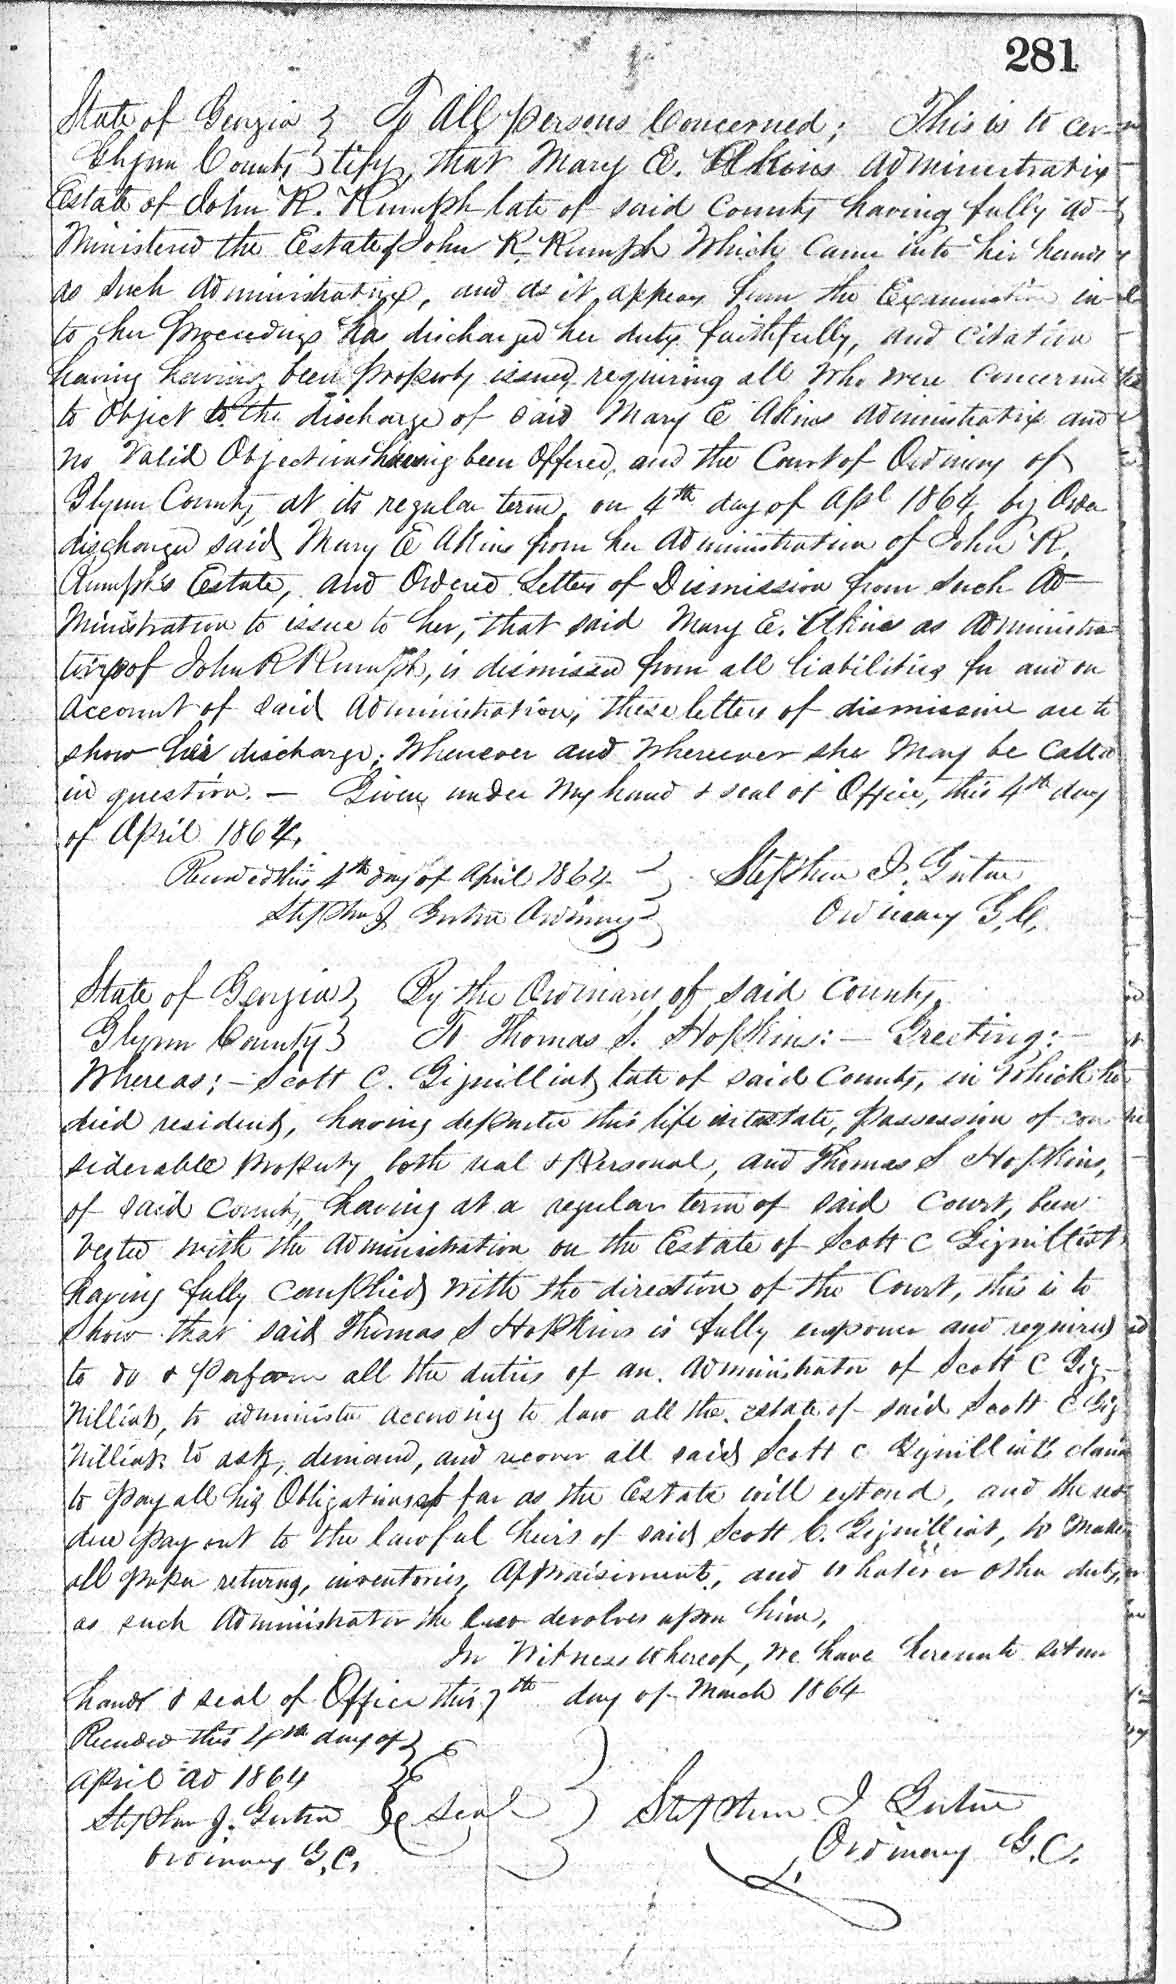 281
State of Georgia } To All persons Concerned; This is to cer-
Glynn County } tify, that Mary E. Akins Administratrix
Estate of John R. Rumph late of said County having fully ad-
ministered the Estate of John R. Rumph Which Came into her hands
as such Administratrix, and as it appears from the Examination in-
to her proceedings has discharged her duty faithfully, and Citation
having having been properly issued requiring all Who were Concerned
to Object to the discharge of said Mary E Akins Administratrix and
no Valid Objections having been Offered, and the Court of Ordinary of
Glynn County at its regular term, on 4th day of Apl 1864, by Order
discharged said Mary E Akins from her Administration of John R.
Rumph's Estate, and Ordered Letters of Dismission from such Ad-
ministration to issue to her, that said Mary E. Akins as Administra-
trix of John R Rumph, is dismissed from all liabilities for and on
account of said Administration, these letters of dismission are to
show her discharge; Whenever and Wherever she May be Called
in question. — Given under My hand & seal of Office, this 4th day
of April 1864.
Recorded this 4th day of April 1864 } Stephen J. Gorton
Stephen J Gorton Ordinary } Ordinary G.C.
State of Georgia } By the Ordinary of said County.
Glynn County } To Thomas S. Hopkins: — Greeting: —
Whereas; — Scott C. Gignilliat, late of said County, in Which he
died resident, having departed this life intestate, possession of con
siderable property both real & Personal, and Thomas S Hopkins,
of said County, having at a regular term of said Court, been
Vested with the Administration on the Estate of Scott C Gignilliat
having fully Complied With the direction of the Court, this is to
Show that said Thomas S Hopkins is fully empower and required
to do & perform all the duties of an Administrator of Scott C Gig-
nilliat, to administer according to law all the estate of said Scott C Gig
nilliat to ask, demand, and recover all said Scott C Gignilliat's claims
to pay all his Obligations as far as the Estate will extend, and the resi
due pay out to the lawful heirs of said Scott C. Gignilliat, to Make
all proper returns, inventories, Appraisements, and Whatever other duty,
as such Administrator the law devolves upon him,
In Witness Whereof, We have hereunto set our
hand & seal of Office this 7th day of March 1864
Recorded this 4th day of }
April AD 1864
Stephen J. Gorton } Seal } Stephen J Gorton
Ordinary G.C. Ordinary G.C.